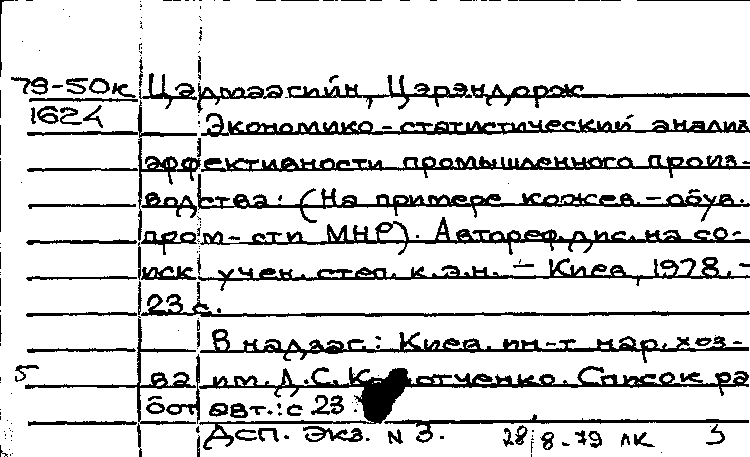 79-50к Цэдмаасийн, Цэрэндорж
1624 Экономико-статистический анализ
эффективности промышленного произ-
водства: (На примере кожев.-обув.
пром-сти МНР). Автореф. дис. на со-
иск учен. степ. к.э.н. - Киев, 1978. -
23 с.
В надзаг.: Киев. ин-т нар. хоз-
5 ва им. Д.С. Список ра
бот авт.: с 23.
Дсп. Экз. N 3. 28/8-79 лк